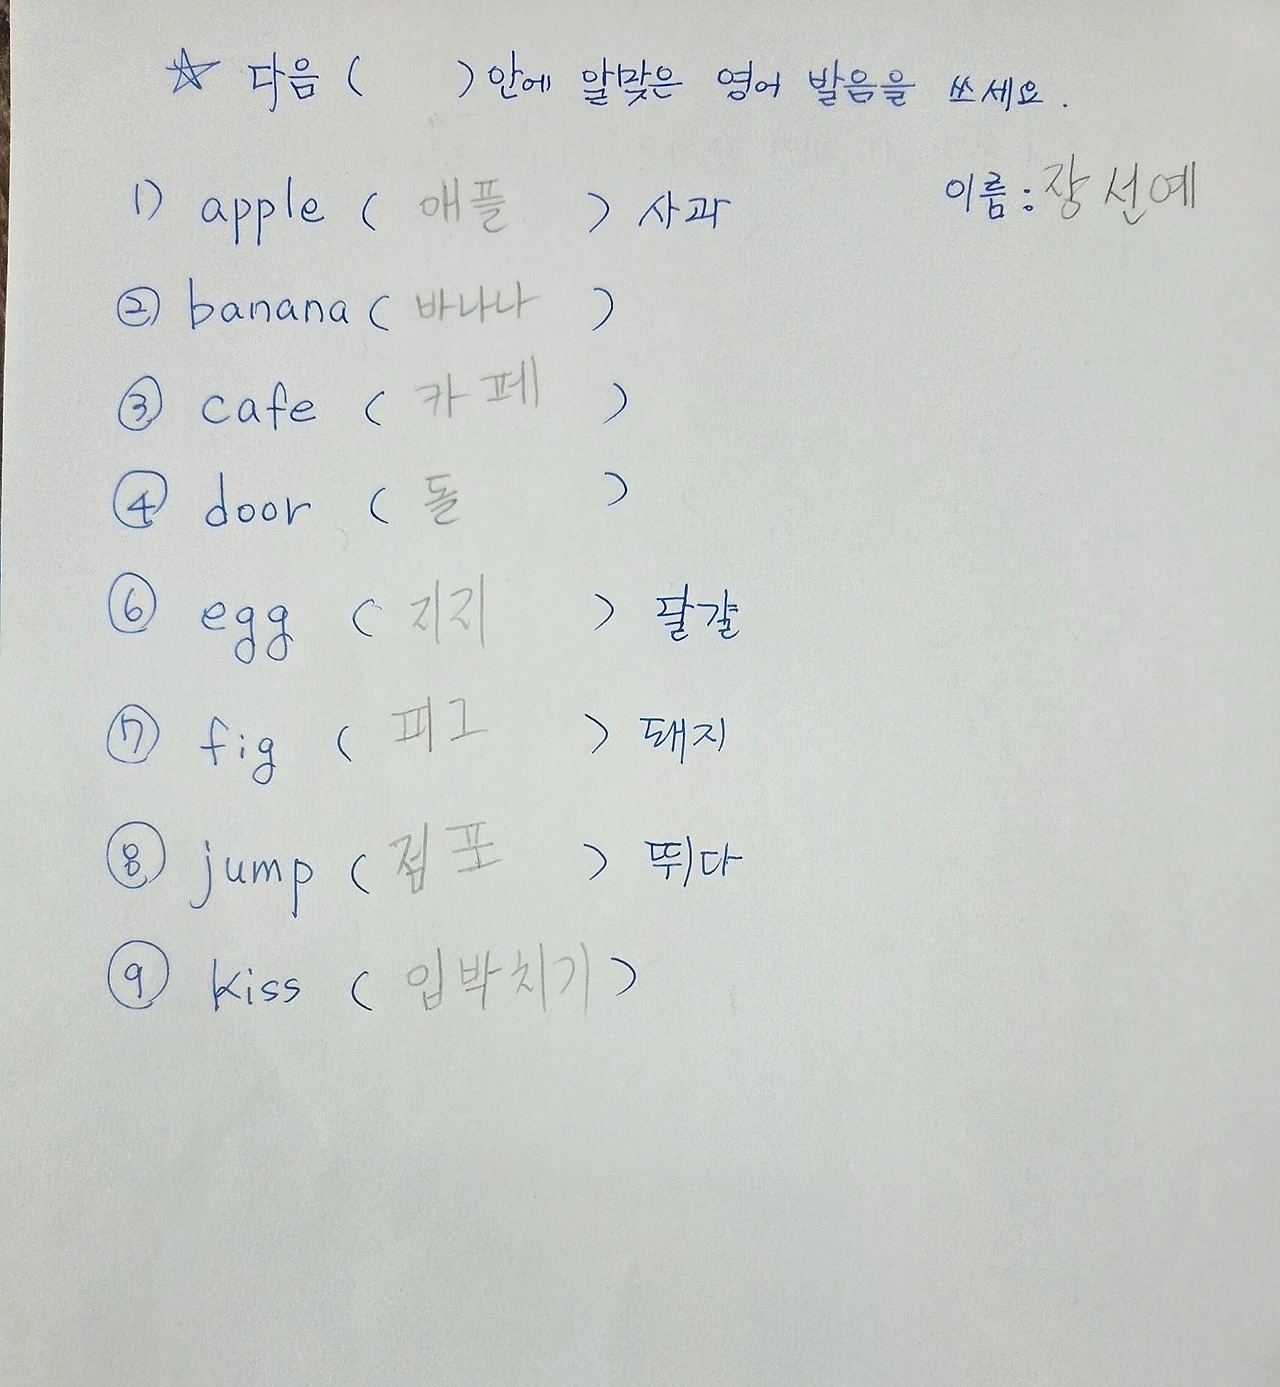 ☆ 다음 ( ) 안에 알맞은 영어 발음을 쓰세요.
이름: 장선예
1) apple ( 애플 ) 사과
② banana ( 바나나 )
③ cafe ( 카페 )
④ door ( 돌 )
⑥ egg ( 지지 ) 달걀
⑦ fig ( 피그 ) 돼지
⑧ jump ( 점포 ) 뛰다
⑨ kiss ( 입박치기 )